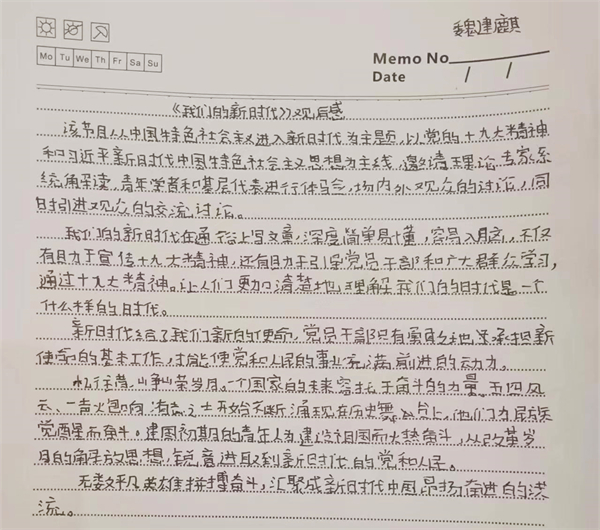 魏建麒
Mo Tu We Th Fr Sa Su
Memo No.
Date / /
《我们的新时代》观后感
该节目以中国特色社会主义进入新时代为主题,以党的十九大精神
和习近平新时代中国特色社会主义思想为主线,邀请理论专家系
统解读,青年学者和基层代表进行体会,场内外观众的讨论,同
时引进观众的交流讨论。
我们的新时代在通俗上写文章,深度简单易懂,容易入月,不仅
有助于宣传十九大精神,还有助于引导党员干部和广大群众学习,
通过十九大精神。让人们更加清楚地理解我们的时代是一个
什么样的时代。
新时代给了我们新的使命,党员干部只有勇敢地承担新
使命的基本工作,才能使党和人民的事业充满前进的动力。
忆往昔,峥嵘岁月,一个国家的未来寄托于奋斗的力量。五四风
云、一青火包向有志之士开始不断涌现在历史舞台上,他们为民族
觉醒而奋斗。建国初期的青年人为建设祖国而大热奋斗,从改革岁
月的解放思想锐意进取到新时代的党和人民。
无数平凡英雄拼搏奋斗,汇聚成新时代中国昂扬奋进的洪
流。